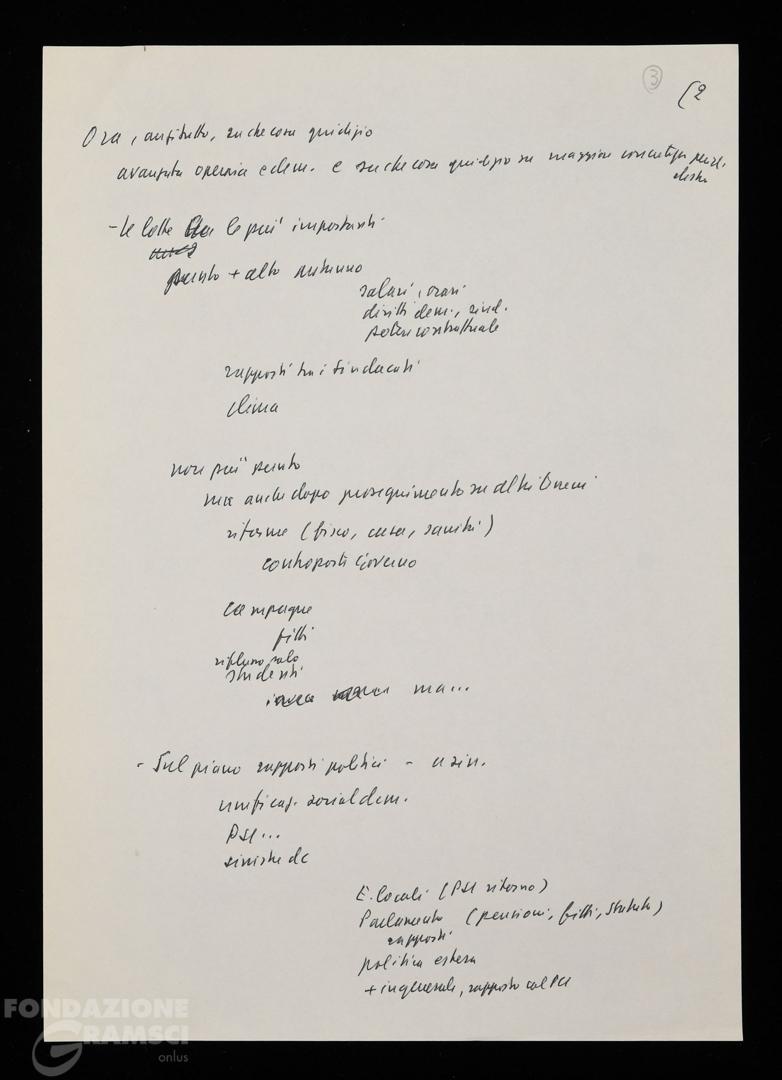 ③ (2
Ora, anzitutto, su che cosa giudizio
avanzata operaia e dem. e su che cosa giudizio su maggiore
destra
- le lotte le più importanti
punto + alto autunno
salari, orari
diritti dem., sind.
potere contrattuale
rapporti tra i sindacati
clima
non più punto
ma anche dopo proseguimento su altri terreni
riforme (fisco, casa, sanità)
contrapposti Governo
campagne
fitti
riflusso solo
studenti
ma...
- Sul piano rapporti politici - a sin.
unificaz. socialdem.
PSI...
sinistre dc
E. locali (PSI ritorno)
Parlamento (pensioni, fitti, Statuto)
rapporti
politica estera
+ in generale, rapporto col PCI
FONDAZIONE
GRAMSCI
onlus